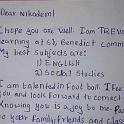 Dear Nikodem!
I hope you are well. I am TREVO
learning at St, Benedict comm
My best subjects are:
1) ENGLISH
2) Social Studies
I am talented in Foot ball. I Fee
you and look forward to connec
Knowing you is a joy to me. Pa
to your Family, Friends and class